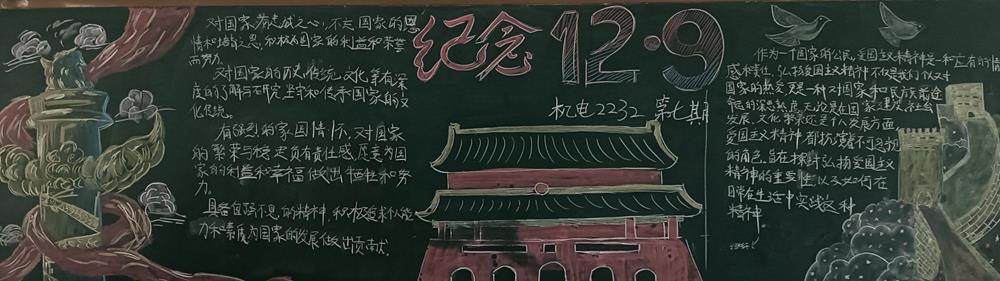 对国家有忠诚之心，不忘国家的恩
情和培育之恩，积极为国家的利益和荣誉
而努力。
对国家的历史、传统、文化等有深
度的了解与研究，坚守和传承国家的文
化传统。
有强烈的家国情怀，对国家
的繁荣与稳定负有责任感，愿意为国
家的利益和幸福做出牺牲和努
力。
具备自强不息的精神，积极追求个人能
力和素质，为国家的发展做出贡献。
纪念12·9
机电2232 第七期
作为一个国家的公民，爱国主义精神是一种应有的情
感和责任，弘扬爱国主义精神不仅是我们仅对
国家的热爱，更是一种对国家和民族前途
命运的深思熟虑，无论是在国家建设、社会
发展、文化繁荣还是个人发展方面
爱国主义精神都扮演着不可忽视
的角色，旨在探讨弘扬爱国主义
精神的重要性以及如何在
日常生活中实践这种
精神。